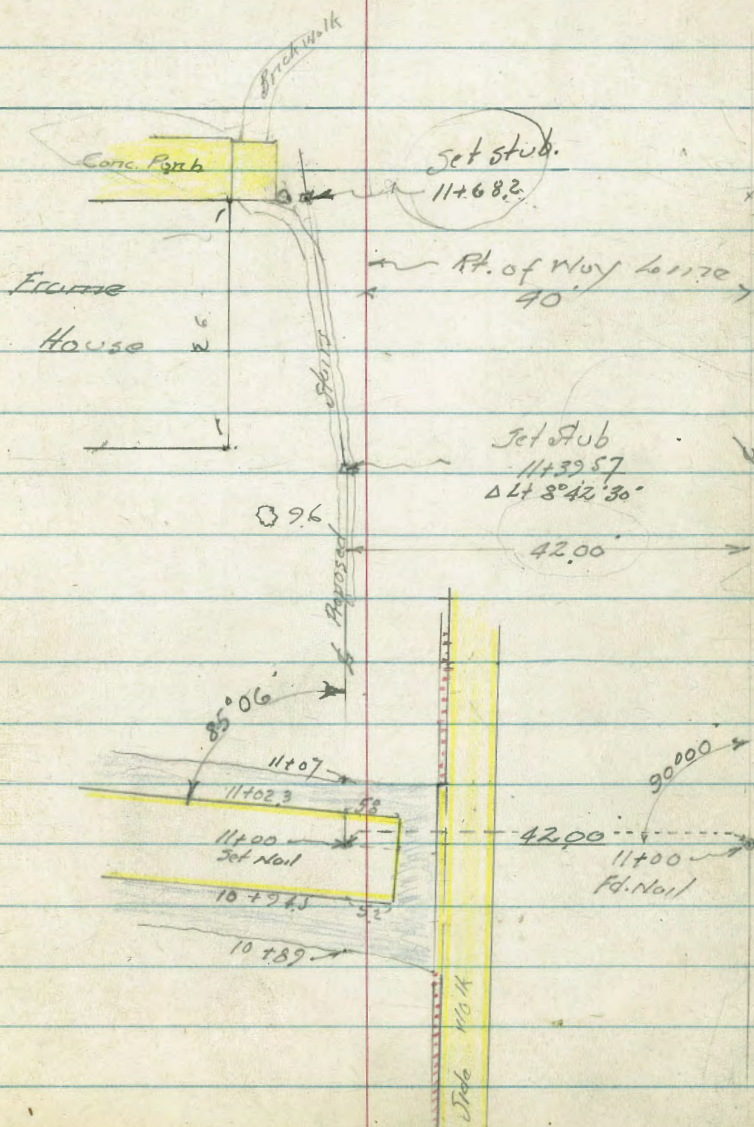 Brick walk
Conc. Porch
Set stub.
11+68.2
Rt. of Way Line
40'
Frame
House
26
Stairs
Set Stub
11+39.57
Δ Lt 8°42'30"
9.6
42.00'
Proposed
85°06'
11+07
11+02.3
5.8
11+00
Set Nail
42.00
90°00'
11+00
Fd. Nail
5.2
10+89
Side Walk